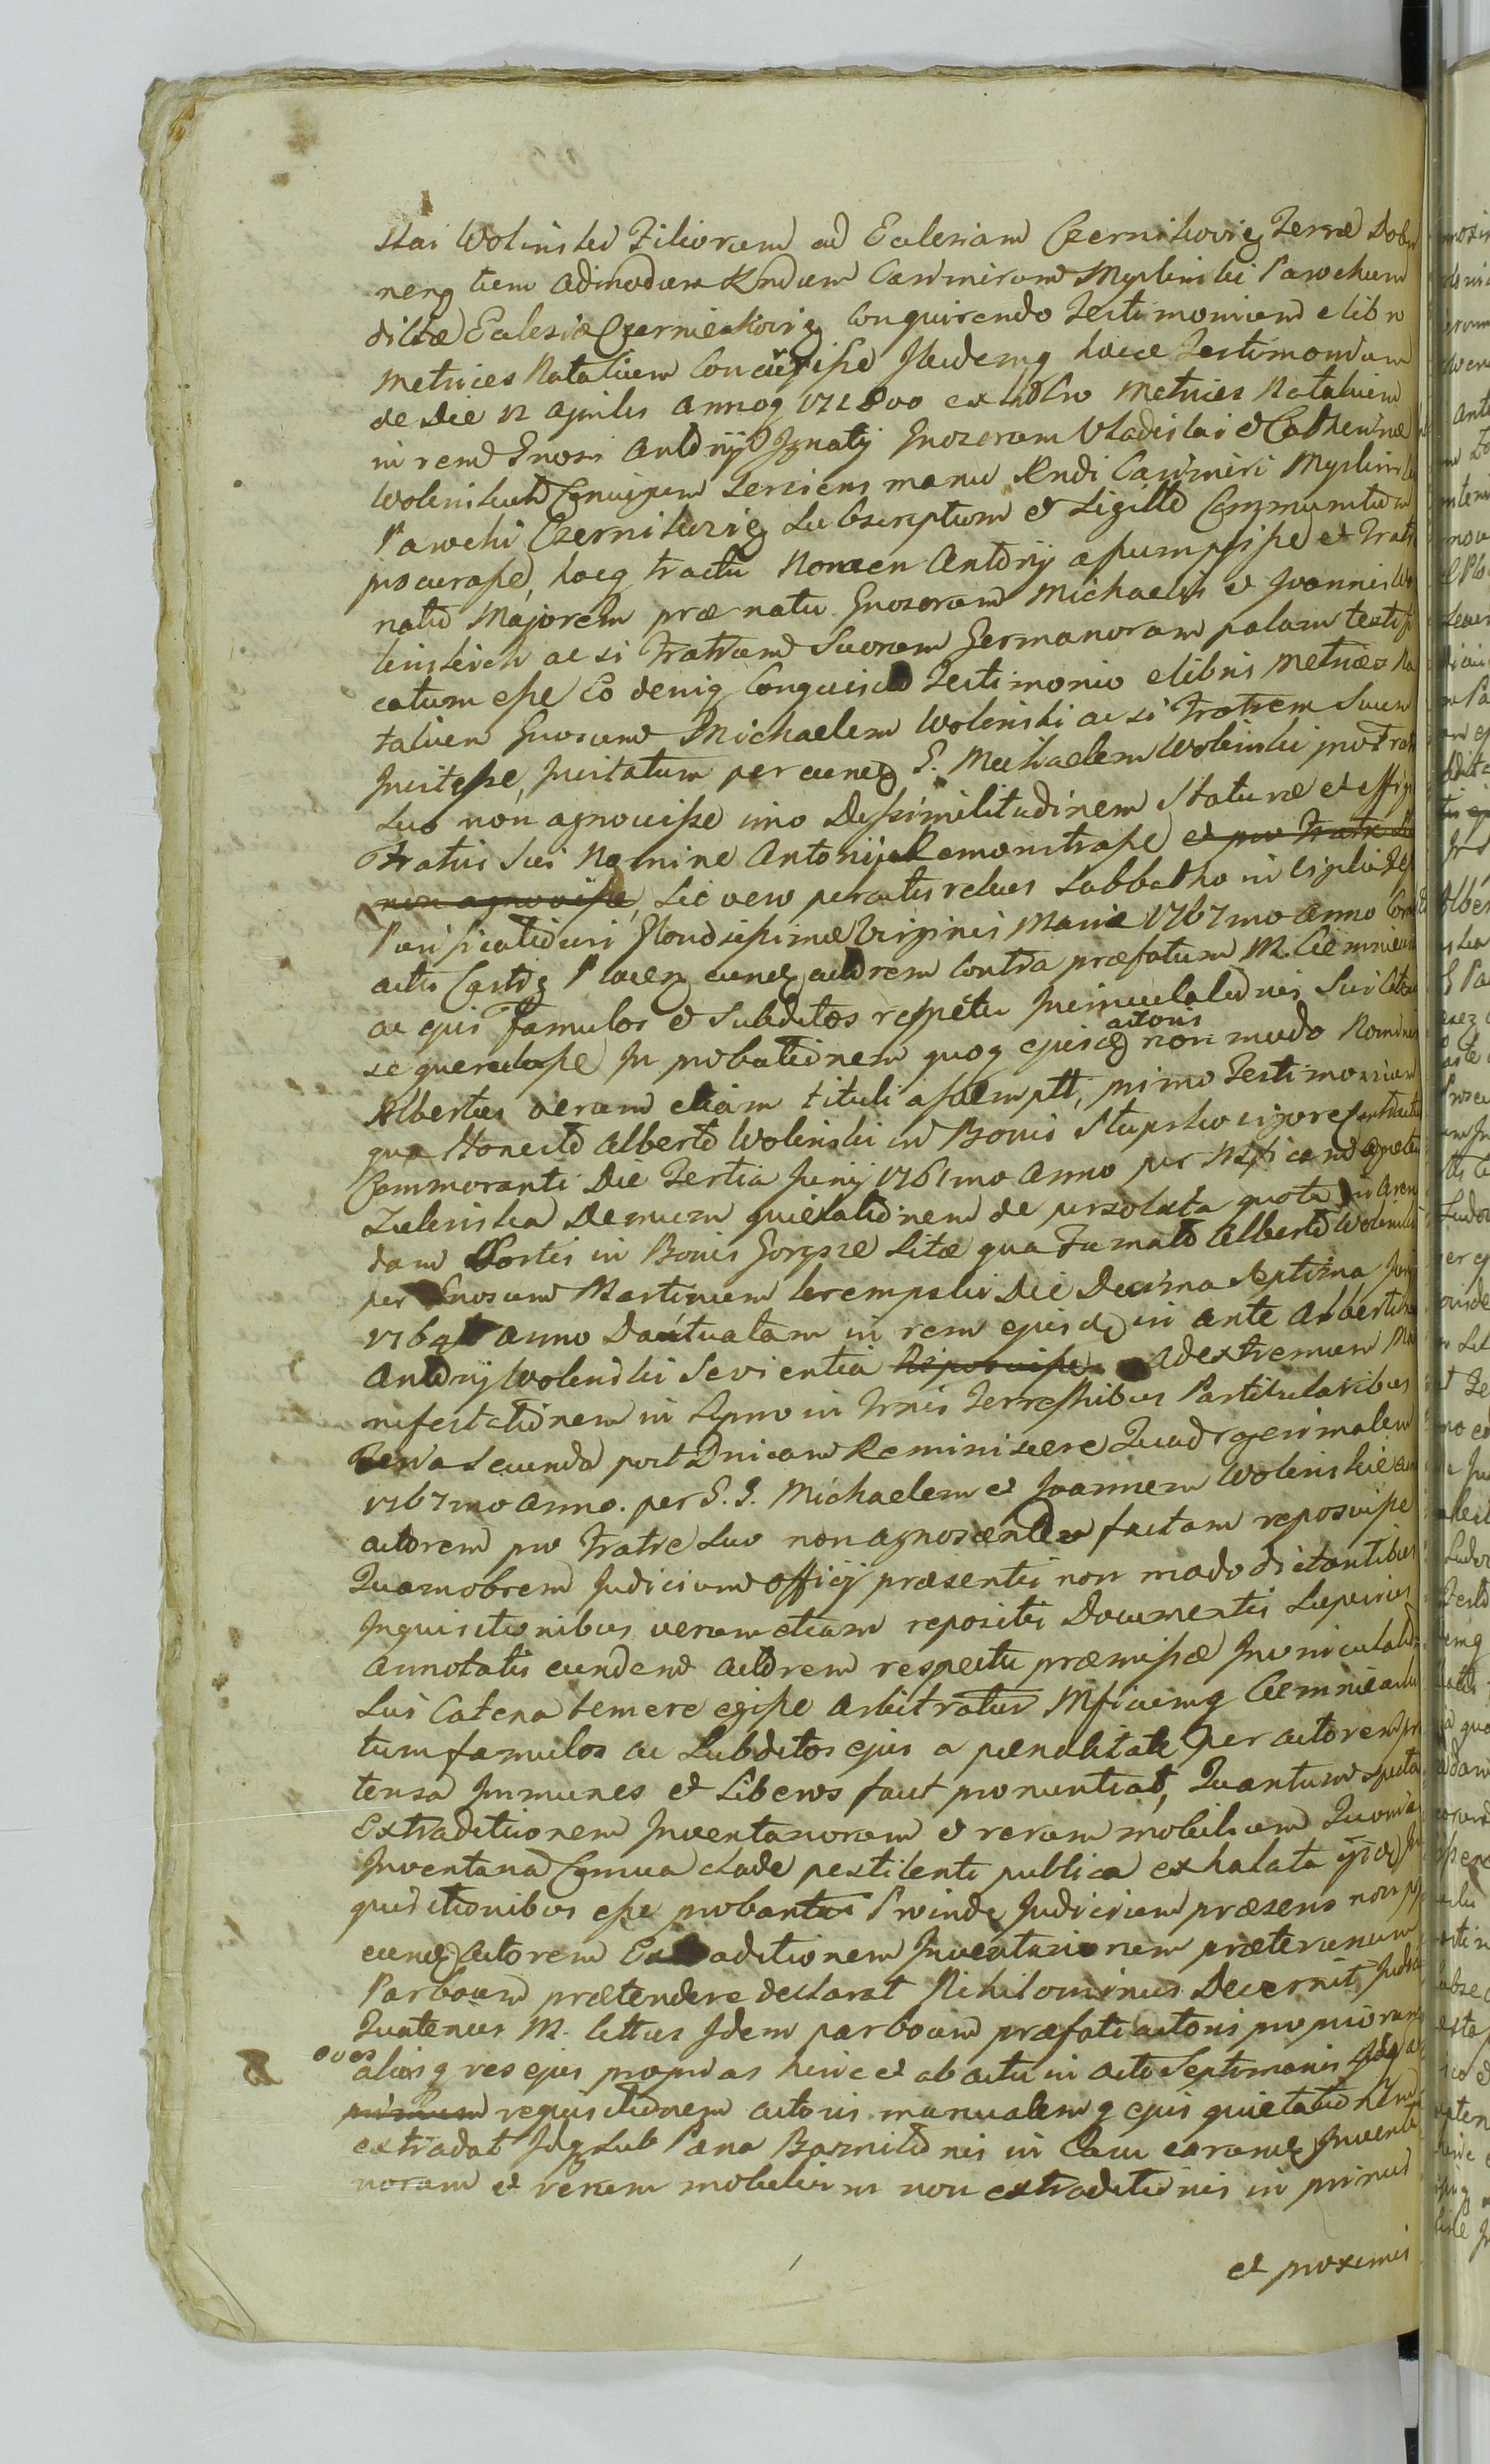 slai Wolinski Filiorum ad Ecclesiam Czernikovię Terræ Dobri
neñ tum Admodum Rndum Casimirum Myslinski Parochum
dictæ Ecclesiæ Czernieskovię conquirendo Testimonium e libro
Metrices Natalium Concurrisse Ibidemq haece Testimonium
de Die 12 Aprilis annoq 17 ex libro Metrices Natalium
in rem Gnosi Antonij Ignatij Gnosorum Uladislai et Catherinæ
Wolenskich Conjugum serviens manu Rndi Casimiri Myslinski
Parochi Czernikovię Subscriptum et Sigillo Communitum
procurasse, hocq tractu Nomen Antonij assumpsisse et Fratr
natu Majorem præ natu Gnosorum Michaelis et Joannis Wo
linskich ac si Fratrum Suorum Germanorum palam testifi
catum esse Eo deniq Conquisito Testimonio e libris Metrices Na
talium Gnosum Michaelem Wolenski ac si Fratrem Suum
Invitasse, Invitatum per eund G. Michaelem Wolenski pro Fratre
Suo non agnovisse imo Dissimilitudinem Staturæ et effigi
Fratris Sui Nomine Antonij Remonstrasse et pro Fratre Suo
non agnovisse, Sic vero peractis rebus Sabbatho in Vigilia Fes
Purificationis Gloriosissimæ Virginis Mariæ 1767mo Anno Coram
actis Castr Ploceñ eund actorem Contra præfatum M. Ciemniewski
ac ejus Famulos et Subditos respectu Invinculationis Sui Catena
se querelasse In probationem quoq ejusd actoris non modo Nominis
Albertus verum etiam tituli assumpti, primo Testimonium
qua Honesto Alberto Wolinski in Bonis Stupsko vigore contractus
Commoranti Die Tertia Junij 1761mo Anno per Mficam Agnetem
Zielinska Demum quietationem de persoluta quota in Aren
dam Sortis in Bonis Gorysze Sitæ qua Famato Alberto Wolinski
per Gnosum Martinum Krempski Die Decima Septima Junij
1764 Anno Datuatam in rem ejusd in ante Alberti
Antonij Wolenski Servientia Reposuisse Ad extremum Ma
nifestationem in Rgmo in Trnis Terrestribus Particularibus
Feria Secunda post Dnicam Reminiscere Quadragesimalem
1767mo Anno. per G. G. Michaelem et Joannem Wolinskie eun
actorem pro Fratre Suo non agnoscentes factam reposuisse
Quamobrem Judicium Officij præsentis non modo dictantibus
Inquisitionibus verum etiam repositis Documentis Superius
Annotatis eundem actorem respectu præmissæ Invinculationis
Sui Catena temere egisse Arbitratur Mficumq Ciemniewski
tum famulos ac Subditos ejus a pœnalitate per actorem præ
tensa Immunes et Liberos facit pronuntiat, Quantum spectat
Extraditionem Inventariorum et rerum mobilium Quoniam
Inventaria Cornua clade pestilenti publica exhalata ijsd In
quisitionibus esse probantur Proinde Judicium præsens non pos
eund actorem Extraditionem Inventariorum præter unum
Parboum prætendere declarat Nihilominus Decernit Judi
Quatenus M. Citus Idem parboum præfati actoris proprium
oves
aliasq res ejus proprias hinc et ab actu in acto Septimanis Idq ad
primum requisitionem actoris manualemq ejus quietationem
extradat Idq Sub Pœna Bannitionis in Casu earund Inventa
riorum et rerum mobilium non extraditionis in primis
et proximis